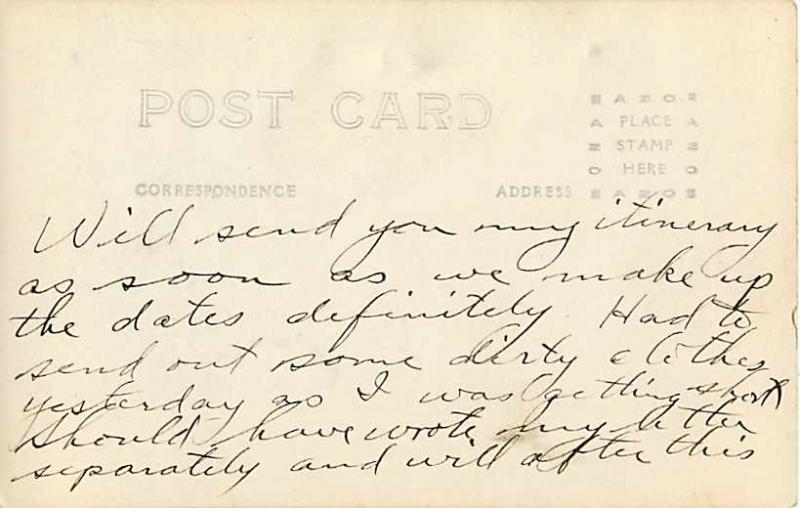 POST CARD
AZO
PLACE
STAMP
HERE
AZO
CORRESPONDENCE
ADDRESS
Will send you my itinerary
as soon as we make up
the dates definitely. Had to
send out some dirty clothes
yesterday as I was getting short
Should have wrote my letter
separately and will after this